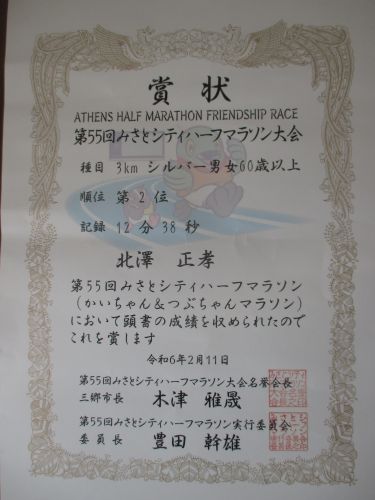 賞状
ATHENS HALF MARATHON FRIENDSHIP RACE
第55回みさとシティハーフマラソン大会
種目 3km シルバー男女60歳以上
順位 第2位
記録 12分38秒
北澤 正孝
第55回みさとシティハーフマラソン
(かいちゃん&つぶちゃんマラソン)
において頭書の成績を収められたので
これを賞します
令和6年2月11日
第55回みさとシティハーフマラソン大会名誉会長
三郷市長 木津 雅晟
第55回みさとシティハーフマラソン実行委員会
委員長 豊田 幹雄